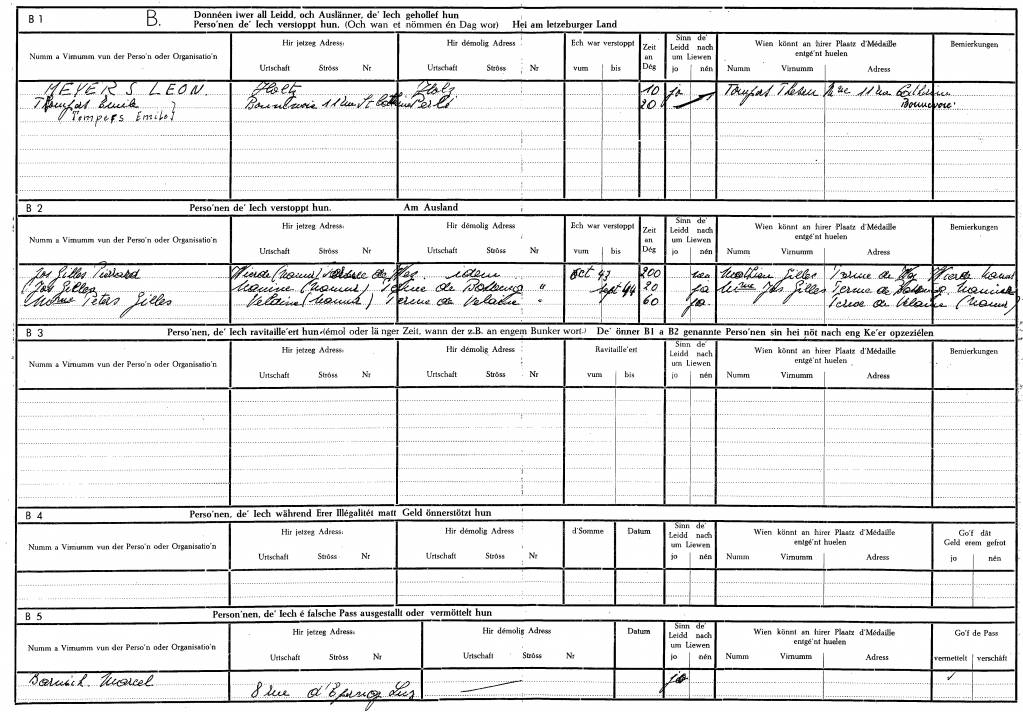 B 1 B. Donnéen iwer all Leidd, och Auslänner, de' Iech gehollef hun
Perso'nen de' Iech verstoppt hun. (Och wan et nömmen én Dag wor) Hei am letzeburger Land
Numm a Virnumm vun der Perso'n oder Organisatio'n
Hir jetzeg Adress:
Urtschaft Ströss Nr
Hir démolig Adress
Urtschaft Ströss Nr
Ech war verstoppt
vum bis
Zeit an Dég
Sinn de' Leidd nach um Liewen
jo nén
Wien könnt an hirer Plaatz d'Médaille entgé'nt huelen
Numm Virnumm Adress
Bemierkungen
MEYERS LEON. Holtz Holz 10 jo Thesen Mme 11 rue
Emile 11 rue St Perlé 20 Bonnevoie
Tompers Emile
B 2 Perso'nen de' Iech verstoppt hun. Am Ausland
Numm a Virnumm vun der Perso'n oder Organisatio'n
Hir jetzeg Adress:
Urtschaft Ströss Nr
Hir démolig Adress
Urtschaft Ströss Nr
Ech war verstoppt
vum bis
Zeit an Dég
Sinn de' Leidd nach um Liewen
jo nén
Wien könnt an hirer Plaatz d'Médaille entgé'nt huelen
Numm Virnumm Adress
Bemierkungen
Jos Gilles Wierde (Namur) idem Oct 43 200 nen Gilles Ferme de Wierde
Jos Gilles (Namur) Ferme de " Sept 44 20 jo Mme Jos Gilles Ferme de
Mme Peters Gilles Velaine (Namur) Ferme de Velaine " 60 jo. Ferme de Velaine (Namur)
B 3 Perso'nen, de' Iech ravitaille'ert hun (émol oder länger Zeit, wann der z.B. an engem Bunker wort.) De' önner B1 a B2 genannte Perso'nen sin hei nöt nach eng Ke'er opzeziélen
Numm a Virnumm vun der Perso'n oder Organisatio'n
Hir jetzeg Adress:
Urtschaft Ströss Nr
Hir démolig Adress
Urtschaft Ströss Nr
Ravitaille'ert
vum bis
Sinn de' Leidd nach um Liewen
jo nén
Wien könnt an hirer Plaatz d'Médaille entgé'nt huelen
Numm Virnumm Adress
Bemierkungen
B 4 Perso'nen, de' Iech während Erer Illégalitét matt Geld önnerstötzt hun
Numm a Virnumm vun der Perso'n oder Organisatio'n
Hir jetzeg Adress:
Urtschaft Ströss Nr
Hir démolig Adress
Urtschaft Ströss Nr
d'Somme
Datum
Sinn de' Leidd nach um Liewen
jo nén
Wien könnt an hirer Plaatz d'Médaille entgé'nt huelen
Numm Virnumm Adress
Go'f dât Geld erem gefrot
jo nén
B 5 Person'nen, de' Iech é falsche Pass ausgestallt oder vermöttelt hun
Numm a Virnumm vun der Perso'n oder Organisatio'n
Hir jetzeg Adress:
Urtschaft Ströss Nr
Hir démolig Adress
Urtschaft Ströss Nr
Datum
Sinn de' Leidd nach um Liewen
jo nén
Wien könnt an hirer Plaatz d'Médaille entgé'nt huelen
Numm Virnumm Adress
Go'f de Pass
vermettelt verschâft
Marcel 8 rue d'Epernay Lux — jo ✓